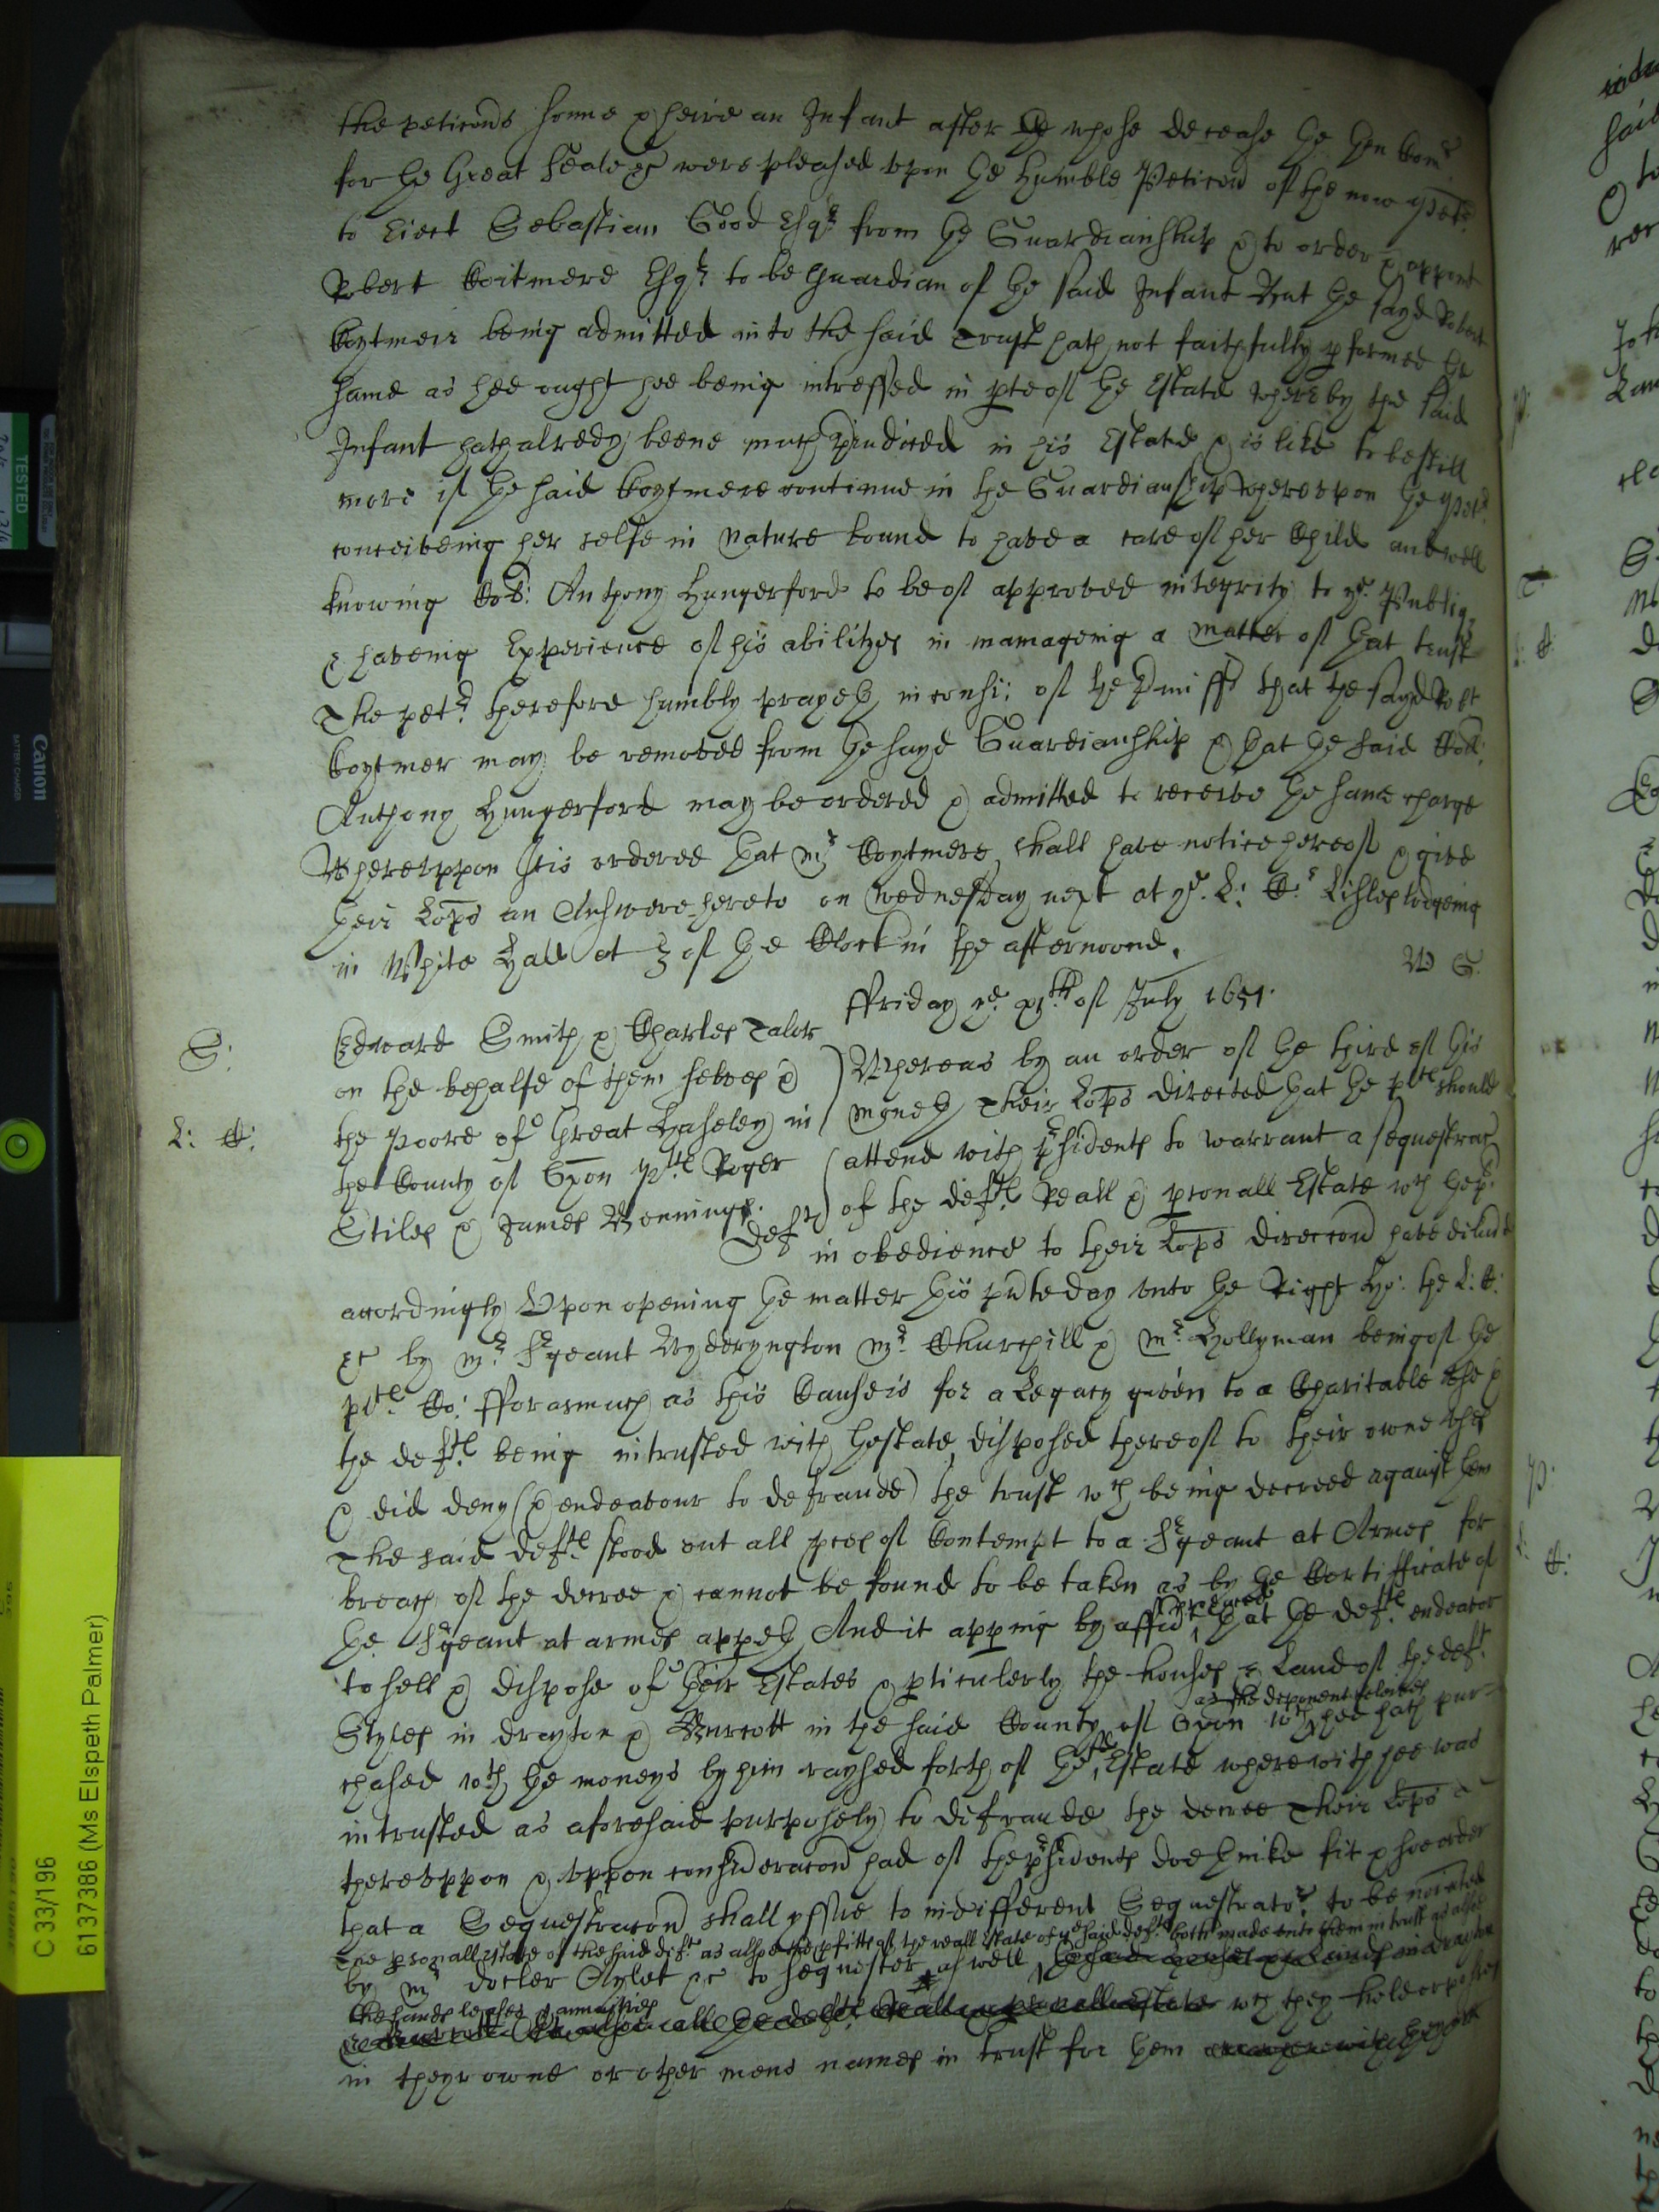 the peticons sonne & heire an Infant after whose decease the then Com.rs
for the Great Seale &c were pleased upon the humble Peticon of the now Petr.
to Eject Sebastian Good Esqr. from the Guardianship & to order & appoynt
Robert Coitmere Esqr. to be Guardian of the said Infant But the sayd Robert
Coytmeir being admitted into the said Trust hath not faithfully pformed the
same as hee ought hee being intressed in pte of the Estate whereby the said
Infant hath alredy beene much piudiced in his Estate & is like to be still
more if the said Coytmere continue in the Guardianship Whereupon the Petr.
conceiveing her selfe in Nature bound to have a care of her Child and well
knowing Coll: Anthony Hungerford to be of approved integrity to ye. Publiq
& haveing Experience of his abilityes in mamageing a matter of that trust
The petr. therefore humbly prayeth in consi: of the pmisses that the sayd Robt
Coytmer may be removed from the sayd Guardianship & that the said Coll:
Anthony Hungerford may be ordered & admitted to receive the same charge
Whereuppon Itis ordered that mr. Coytmere shall have notice hereof & give
their Lopps an Answere hereto on Wednesday next at ye. L: C:s Lisles lodgeing
in White Hall at 3 of the Clock in the afternoone.
W S.
ffriday ye. xjth of July 1651.
S:
L: C:
Edward Smith & Charles Talor
on the behalfe of them selves &
the Poore of Great Haseley in
the County of Oxon Plts. Roger
Stiles & James Jennings.
Defts
Whereas by an order of the third of this
Moneth Their Lopps directed that the plts. should
attend with psidents to warrant a sequestrac
of the defts. Reall & psonall Estate wch they
in obedience to their Lopps direccon have
accordingly Upon opening the matter this psnte day unto the Right Ho: the L: C:
&c by mr. Sjeant Wyderyngton mr. Churchill & mr. Hollyman being of the
plts. Co: fforasmuch as this Cause is for a Legacy given to a Charitable use &
the defts. being intrusted with thestate disposed thereof to their owne uses
& did deny (& endeavour to defraude) the trust wch being decreed against them
The said defts. stood out all pces of Contempt to a Sjeant at Armes for
breach of the decree & cannot be found to be taken as by the Certifficate of
the Sjeant at armes appeth And it apping by affidt. produced that the defts. endeavor
to sell & dispose of their Estates & pticulerly the houses & Land of the deft.
Styles in drayton & Burcott in the said County of Oxon wch as the deponent beleives hee hath pur-
chased wth the moneys by him raysed forth of the Estate wherewith hee was
intrusted as aforesaid purposely to defraude the decree Their Lopps
thereuppon & uppon consideracon had of the psidents doe thinke fit & soe order
that a Sequestracon shall yssue to indifferent Sequestrators. to be noiated
the psonall estate of the said defts. as alsoe the pfitts of the reall Estate of ye said defts. both made unto them in trust as alsoe
by mr doctor Aylet &c to sequester as well
the lands leases & annuities wch they hold or posses
in theyr owne or other mens names in trust for them
TESTED
Canon
BATTERY CHARGER
C 33/196
6137386 (Ms Elspeth Palmer)